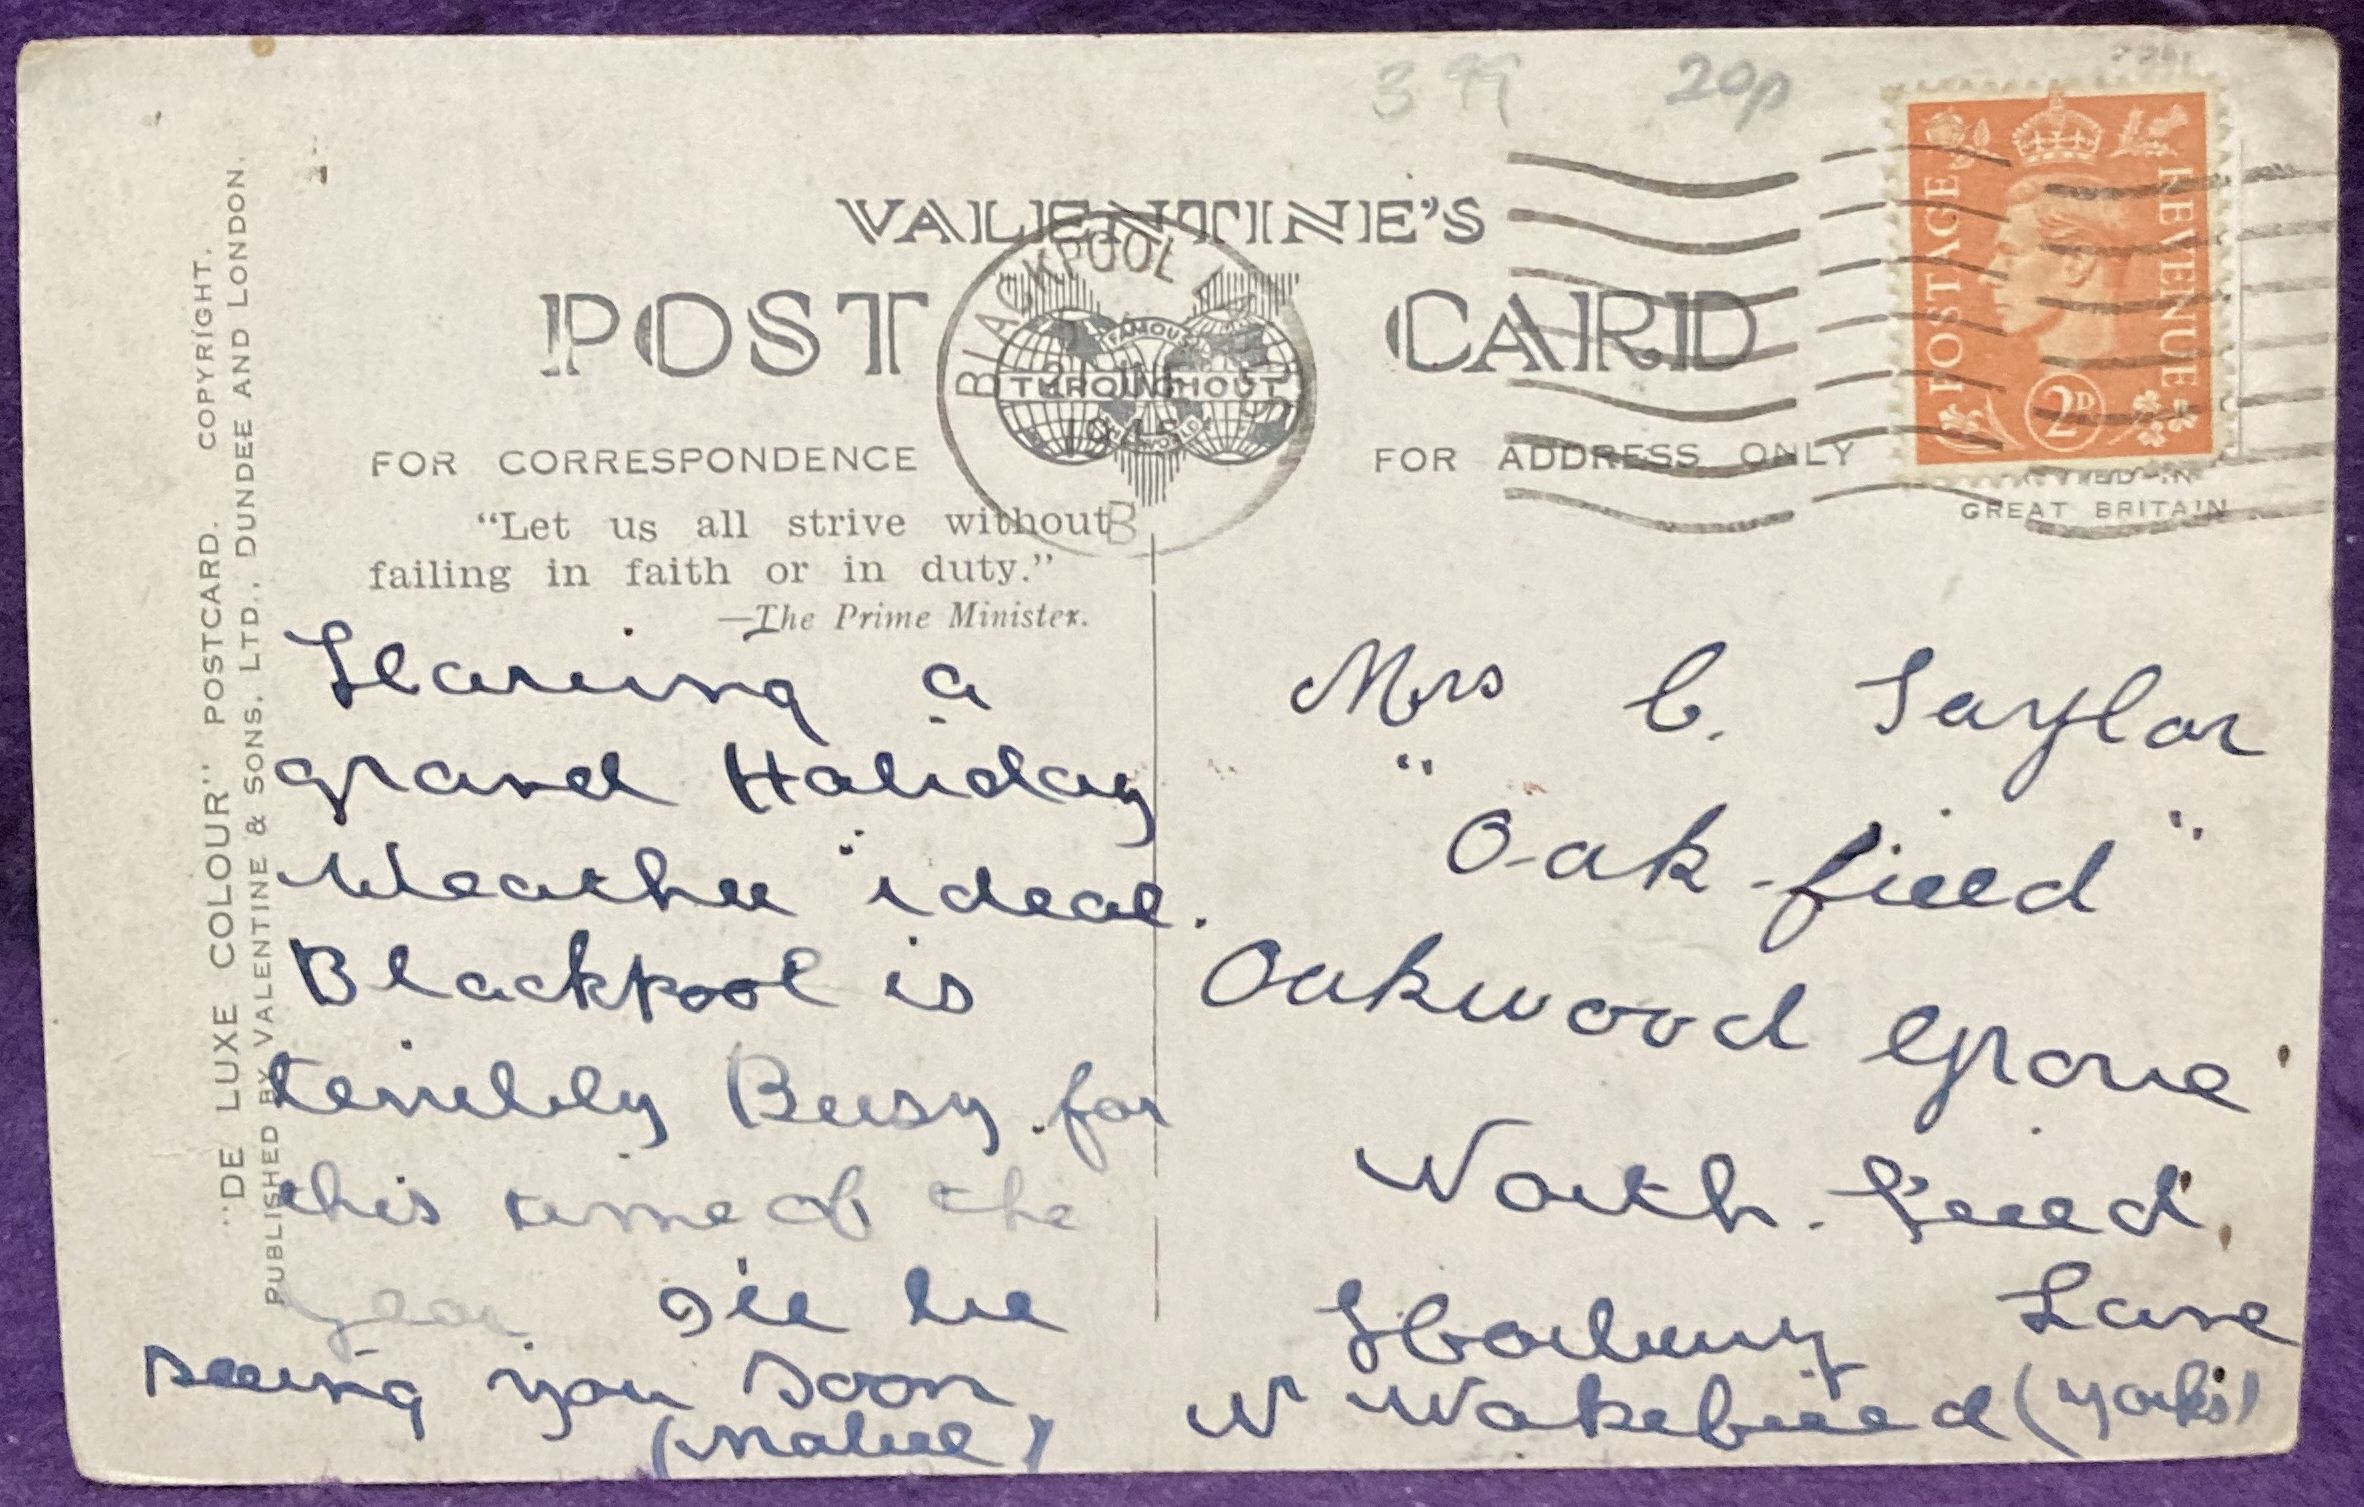 3 99 20p
VALENTINE'S
POST CARD
FAMOUS
THROUGHOUT
THE WORLD
BLACKPOOL
1945
B
POSTAGE REVENUE
2D
FOR CORRESPONDENCE
FOR ADDRESS ONLY
GREAT BRITAIN
"Let us all strive without
failing in faith or in duty."
—The Prime Minister.
"DE LUXE COLOUR" POSTCARD. COPYRIGHT.
PUBLISHED BY VALENTINE & SONS, LTD., DUNDEE AND LONDON.
Having a
grand Holiday
Weather ideal.
Blackpool is
terribly Busy for
this time of the
year I'll be
seeing you soon
(Mabel)
Mrs C. Taylor
"Oak-field"
Oakwood Grove
North-field
Horbury Lane
Nr Wakefield (Yorks)